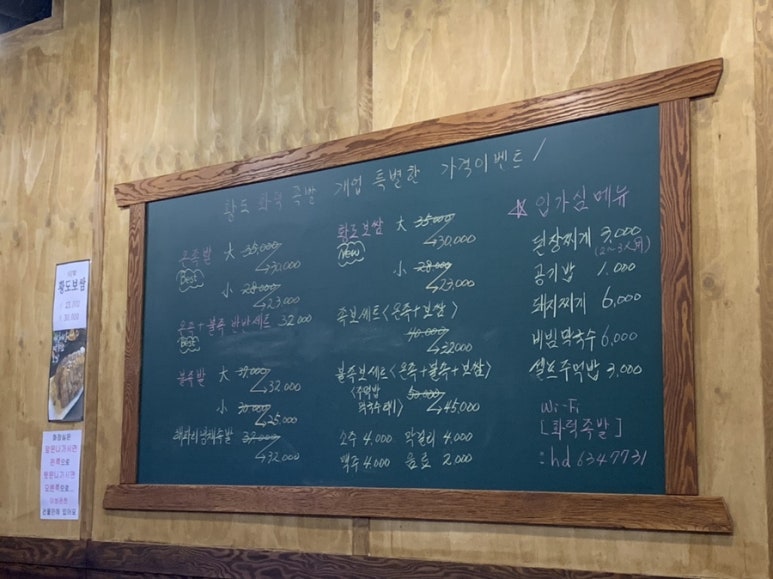 황토 화덕 족발 개업 특별한 가격이벤트!
온족발 大 35,000
30,000
Best
小 28,000
23,000
온족+불족 반반세트 32,000
Best
불족발 大 37,000
32,000
小 30,000
25,000
해파리냉채족발 37,000
32,000
화도보쌈 大 35,000
30,000
New
小 28,000
23,000
족보세트<온족+보쌈>
40,000
32,000
불족보세트<온족+불족+보쌈>
<주먹밥
막국수 50,000
45,000
소주 4,000 막걸리 4,000
맥주 4,000 음료 2,000
☆ 입가심 메뉴
된장찌개 3,000
(2~3人용)
공기밥 1,000
돼지찌개 6,000
비빔막국수 6,000
셀프주먹밥 3,000
Wi-Fi
[화력족발]
: hd6347731
황도보쌈
화장실은
앞문나가시면
왼쪽으로
뒷문나가시면
오른쪽으로
건물안에 있어요